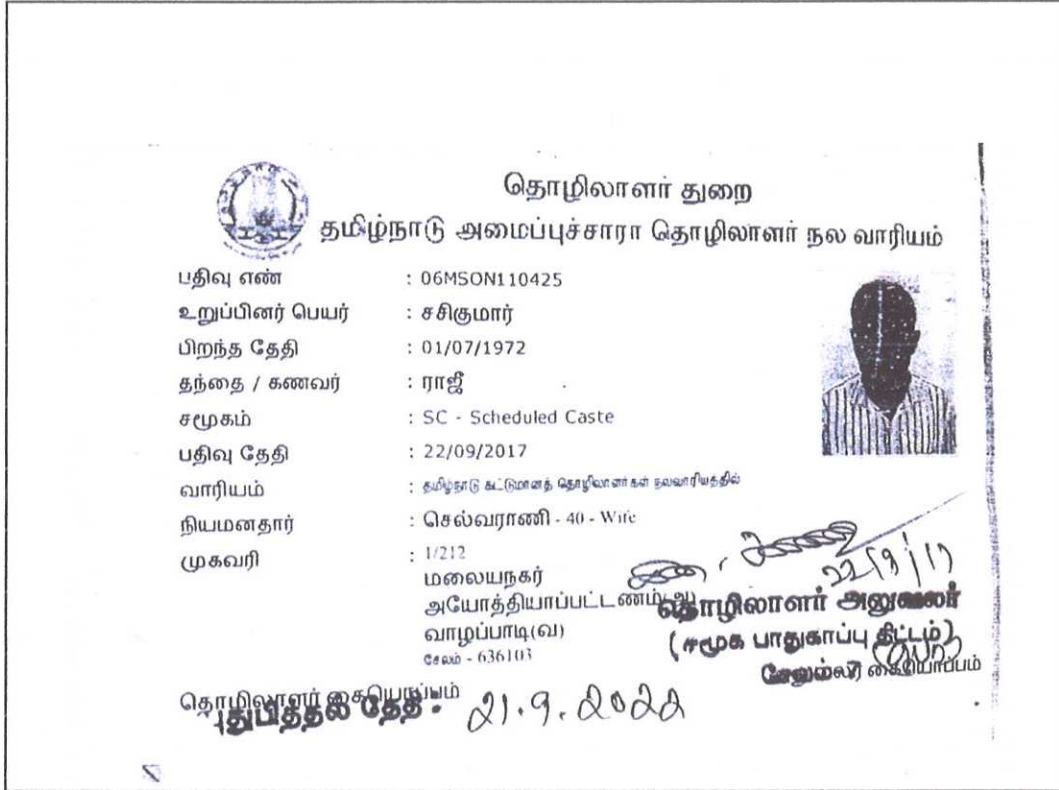 தொழிலாளர் துறை
தமிழ்நாடு அமைப்புச்சாரா தொழிலாளர் நல வாரியம்
பதிவு எண் : 06MSON110425
உறுப்பினர் பெயர் : சசிகுமார்
பிறந்த தேதி : 01/07/1972
தந்தை / கணவர் : ராஜீ
சமூகம் : SC - Scheduled Caste
பதிவு தேதி : 22/09/2017
வாரியம் : தமிழ்நாடு கட்டுமானத் தொழிலாளர்கள் நலவாரியத்தில்
நியமனதார் : செல்வராணி - 40 - Wife
முகவரி : 1/212
மலையநகர்
அயோத்தியாப்பட்டணம்
வாழப்பாடி(வ)
சேலம் - 636103
22/9/17
தொழிலாளர் அலுவலர்
(சமூக பாதுகாப்பு திட்டம்)
கையொப்பம்
தொழிலாளர் கையொப்பம்
புதுபித்தல் தேதி : 21.9.2022